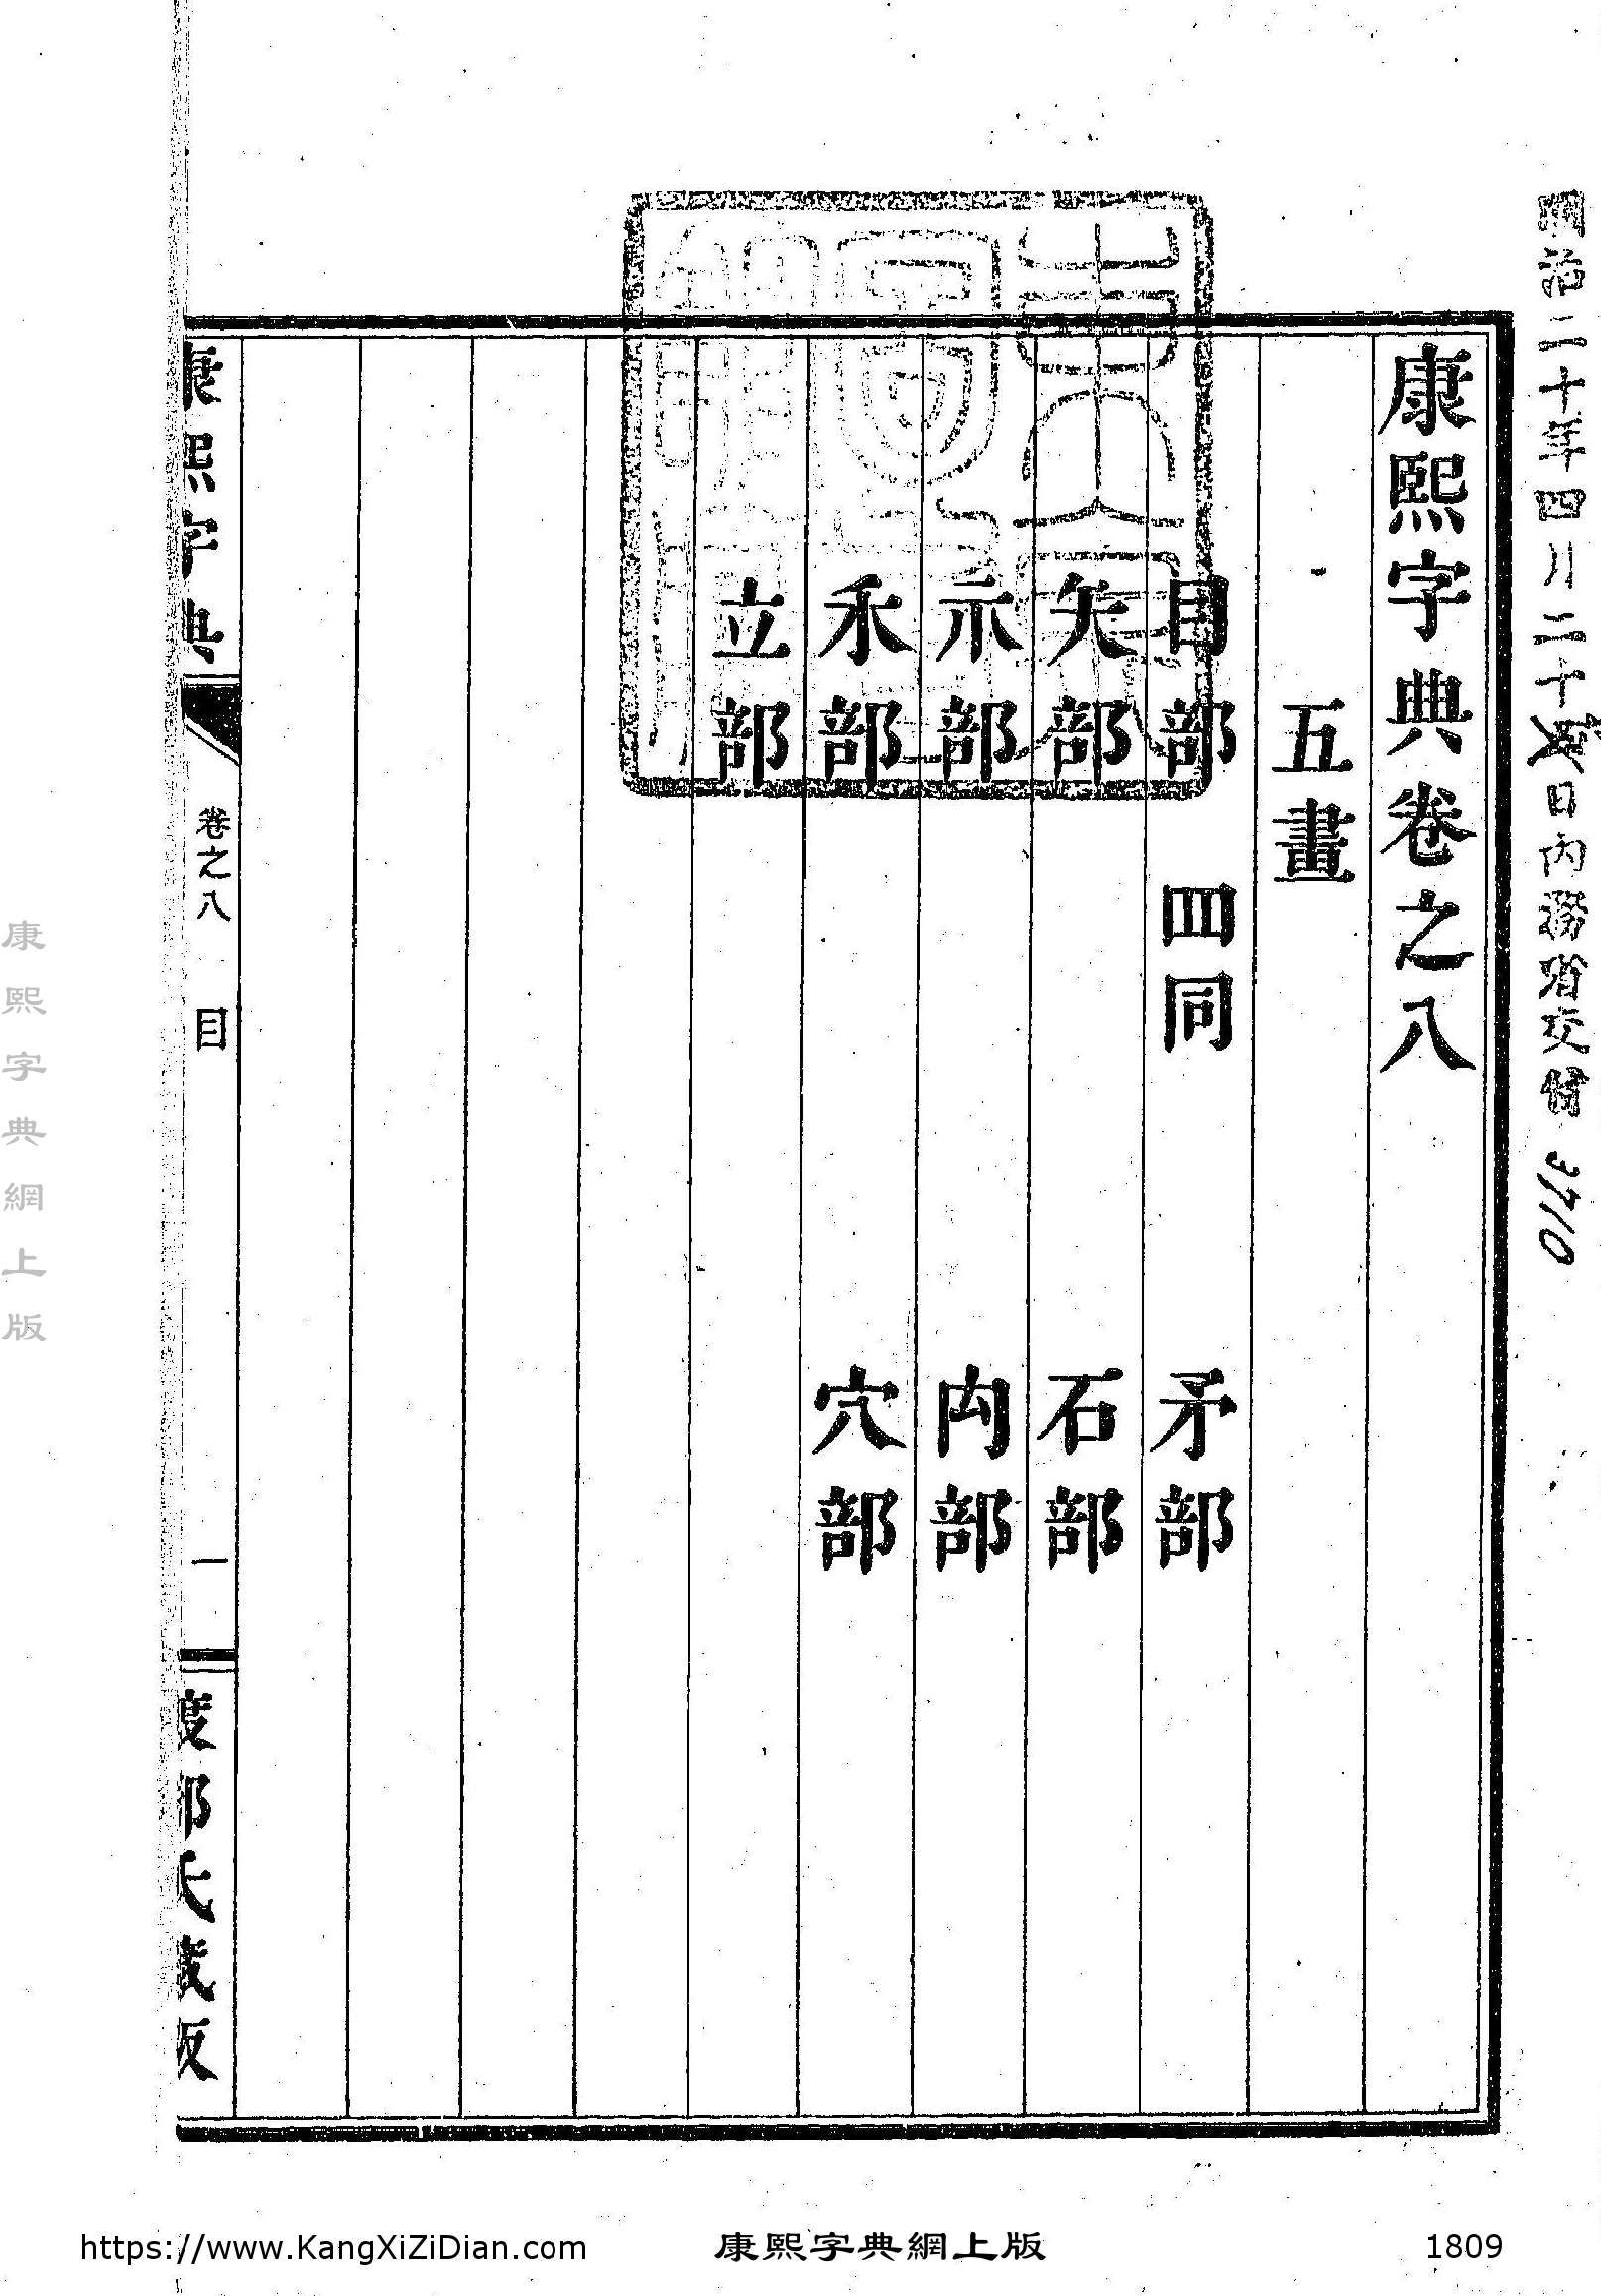 康熙字典卷之八
五畫
目部 𦉰同 矛部
矢部 石部
示部 禸部
禾部 穴部
立部
康熙字典 卷之八 目 一 渡部氏藏版
明治二十年四月二十 日内務省交付 3/10
康熙字典網上版
https://www.KangXiZiDian.com
康熙字典網上版
1809